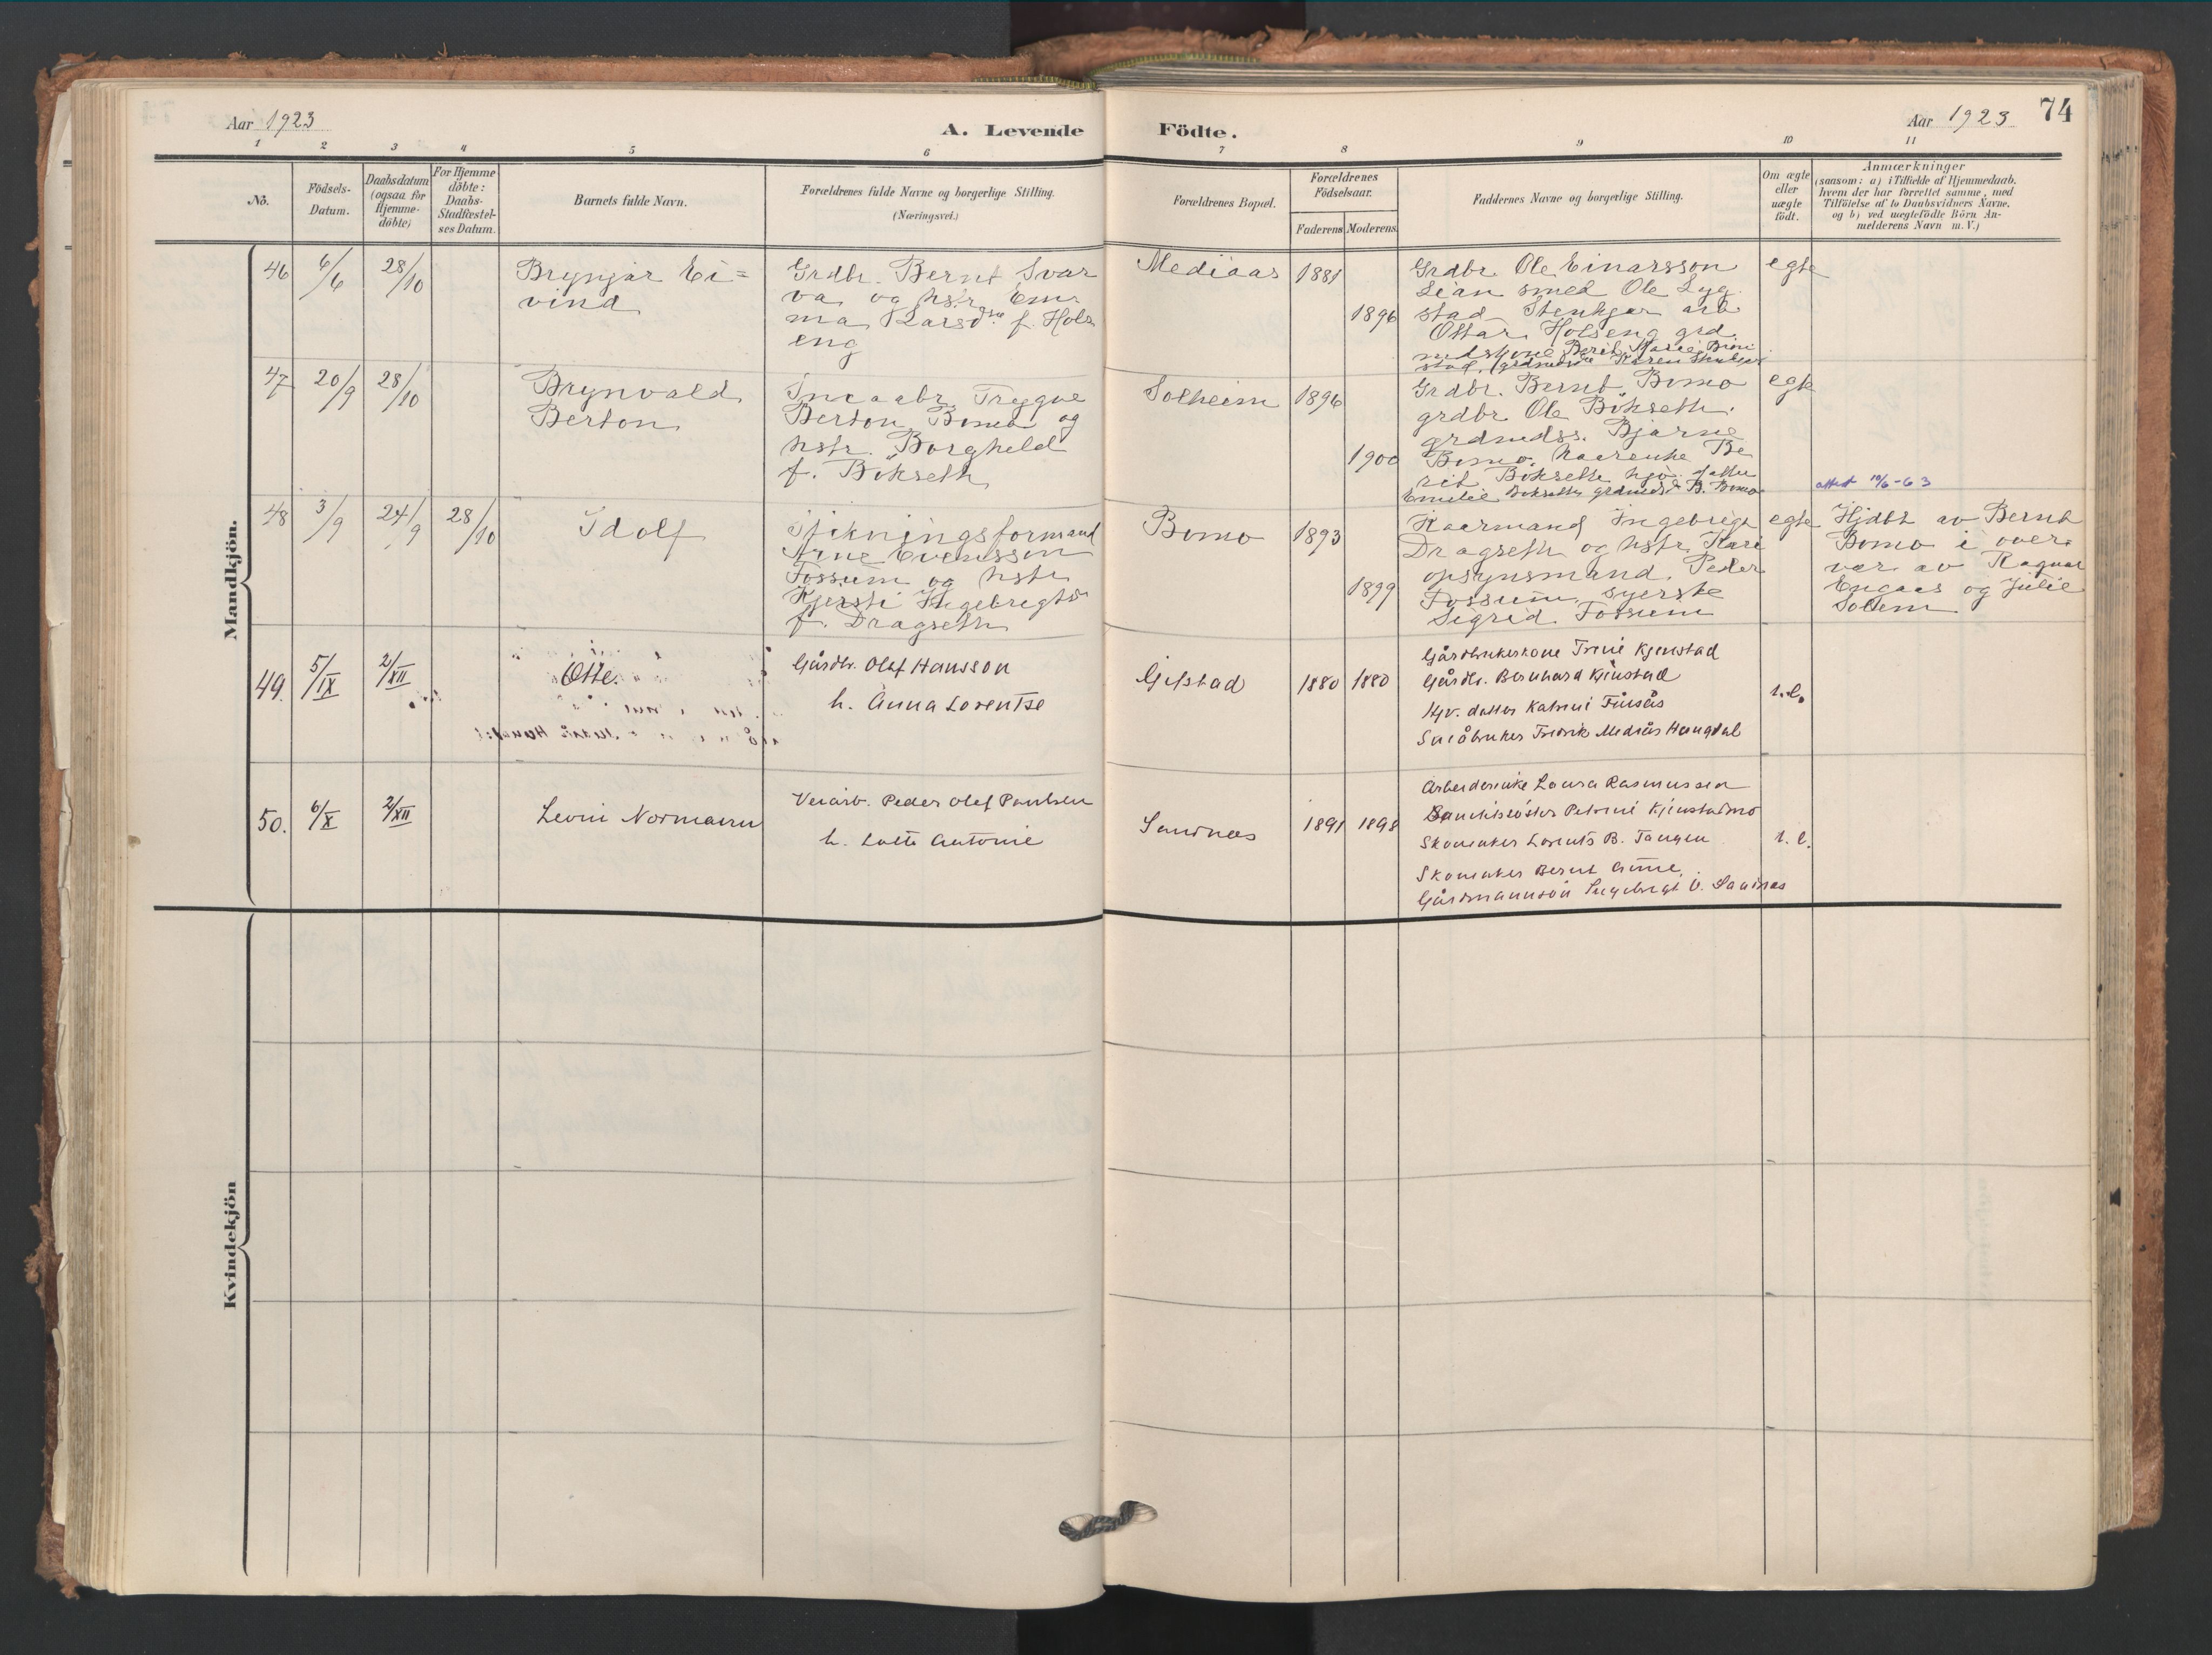 Aar 1923
A. Levende
Födte.
Aar 1923
74
1 2 3 4 5 6 7 8 9 10 11
No.
Födsels-
Datum.
Daabsdatum
(ogsaa for
Hjemme-
döbte)
For Hjemme
döbte:
Daabs-
Stadfæstel-
ses Datum.
Barnets fulde Navn.
Forældrenes fulde Navne og borgerlige Stilling.
(Næringsvei.)
Forældrenes Bopæl.
Forældrenes
Födselsaar.
Faderens
Moderens
Faddernes Navne og borgerlige Stilling.
Om ægte
eller
uægte
födt.
Anmærkninger
(saasom: a) i Tilfælde af Hjemmedaab.
hvem der har forrettet samme, med
Tilföielse af to Daabsvidners Navne.
og b) ved uægtefödte Börn An-
melderens Navn m. V.)
Mandkjön.
46
6/6
28/10
Brynjar Ei=
vind
Grdbr. Bernt Svar
va og hstr. Em
ma Larsd f. Hols
eng
Mediaas
1881
1896
Grdbr. Ole Einarsson
Lian smed Ole Lyg
stad Stenkjer arb
Ottar Holseng grd
mdskone Berit Marie
stad, Karen
egte
47
20/9
28/10
Brynvald
Berton
Trygve
Berton Bomo og
hstr. Borghild
f. Bökseth
Solheim
1896
1900
Grdbr. Bernt Bomo
grdbr Ole Bökseth
grdmdss. Bjarne
Bomo, Be
rit Bökseth hjv. datter
Emilie Bökseth grdmdsd B. Bomo
egte
attest 10/6-63
48
3/9
24/9
28/10
Idolf
Stikningsformand
Arne Evensson
Fossum og hstr
Kjersti Ingebrigtsd
f. Dragseth
Bomo
1893
1899
Kaarmand Ingebrigt
Dragseth og hstr. Kari
opsynsmand Peder
Fossum, syerske
Sigrid Fossum
egte
Hjdbt av Bernt
Bomo i over
vær av Ragnar
Engaas og Julie
Solem
49.
5/IX
2/XII
Otte.
Gårdbr. Olaf Hansson
h. Anna Lorentse
Gifstad
1880
1880
Gårdbrukerkone Trine Kjenstad
Gårdbr. Bernhard Kjenstad
Hjv. datter Katrine Finsås
Småbruker Fredrik Mediås Haugdal
50.
6/X
2/XII
Levin Normann
Veiarb. Peder Olaf Paulsen
h. Lotte Antonie
Sandnes
1891
1898
Arbeiderenke Laura Rasmussen
Petrine Kjenstadmo
Skomaker Lorents B. Tangen
Skomaker Bernt
Gårdmannssön Ingebrigt O. Sandnes
Kvindekjön